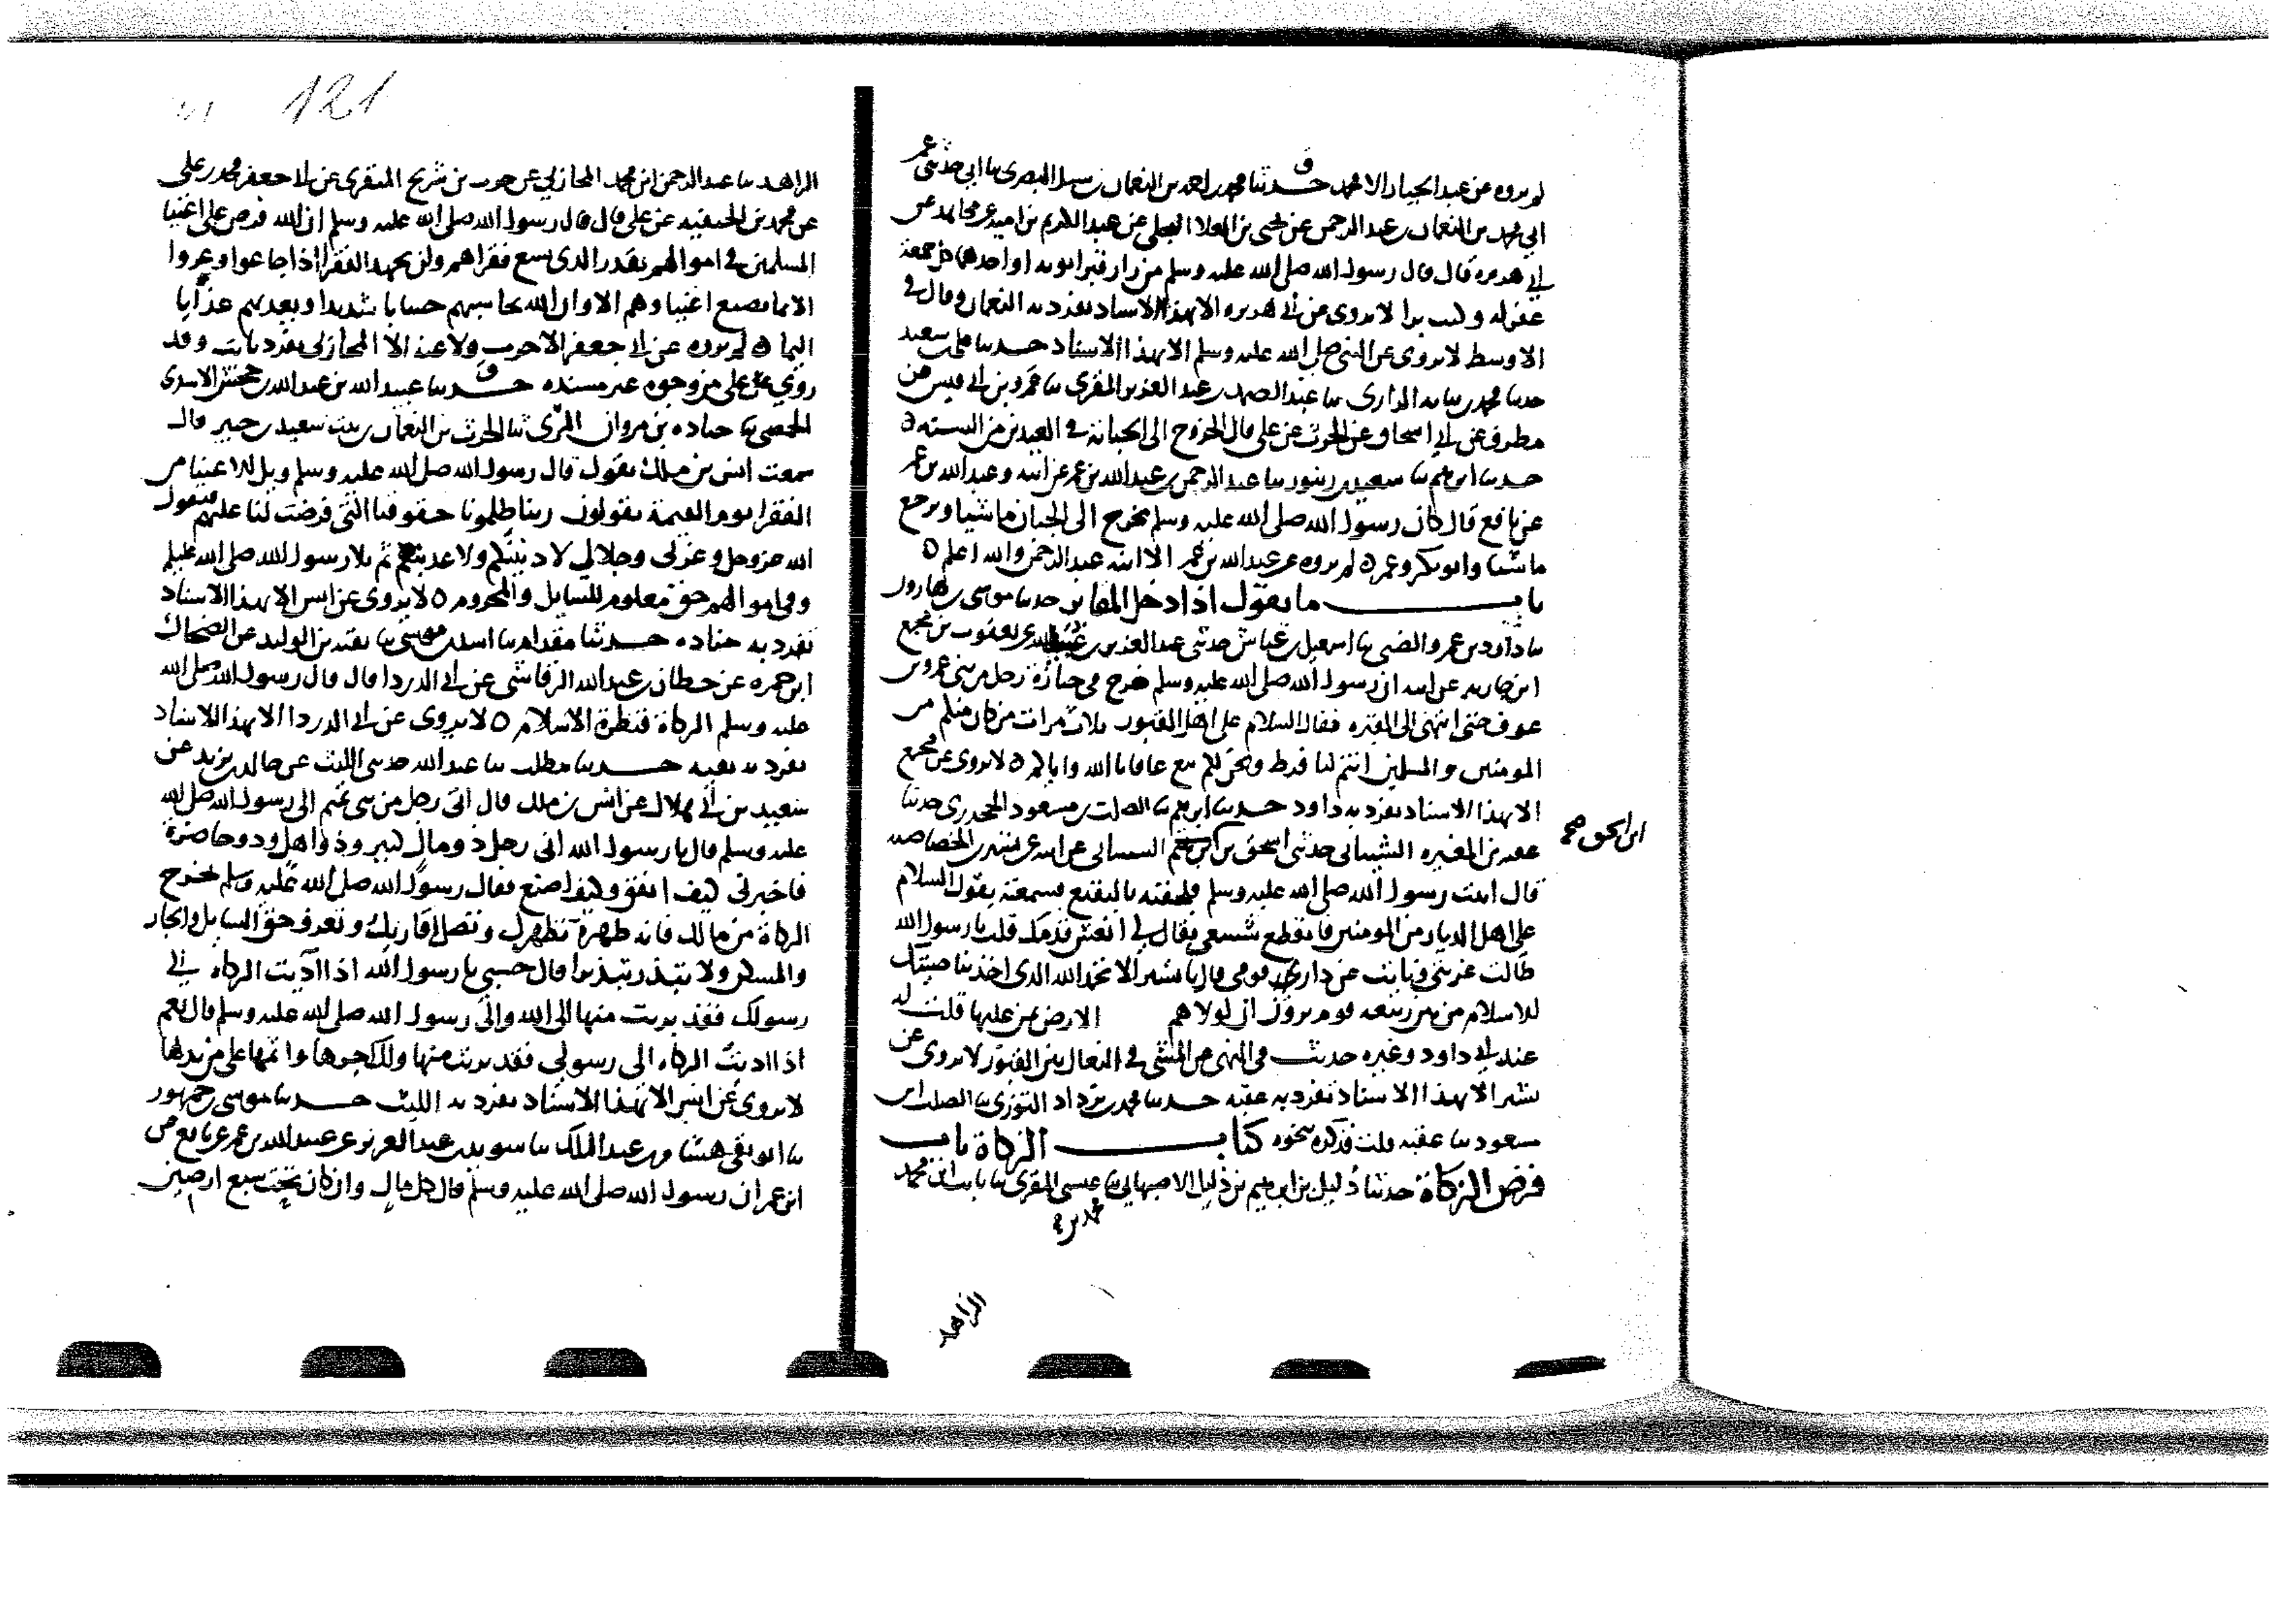 لم يروه عن عبد الجبار الا محمد حدثنا محمد بن احمد بن النعمان بن شبل البصرى سا ابى حدثنى عم
ابى محمد بن النعمان بن عبد الرحمن عن يحيى بن العلا البجلى عن عبد الكريم بن امية عن مجاهد عن
ابي هريرة قال قال رسول الله صلى الله عليه وسلم من زار قبر ابويه او احدهما كل جمعة
غفر له وكتب برا لا يروى عن ابي هريرة الا بهذا الاسناد تفرد به النعمان وقال في
الاوسط لا يروى عن النبي صلى الله عليه وسلم الا بهذا الاسناد حدثنا على بن سعيد
حدثنا محمد الدارى سا عبد الصمد بن عبد العزيز المقرى سا عمرو بن ابي قيس عن
مطرف عن ابي اسحاق عن الحرث عن على قال الخروج الى الجبانة في العيدين من السنة ٥
حدثنا ابرهيم سا سعيد سا عبد الرحمن بن عبد الله بن عمر عن ابيه وعبد الله بن عمر
عن نافع قال كان رسول الله صلى الله عليه وسلم يخرج الى الجبان ماشيا ويرجع
ماشيا وابو بكر وعمر ٥ لم يروه عن عبد الله بن عمر الا ابنه عبد الرحمن والله اعلم ٥
باب ما يقول اذا دخل المقابر حدثنا موسى بن هارون
سا داود بن عمرو الضبى سا اسمعيل بن عياش حدثنى عبد العزيز بن عبيد الله عن يعقوب بن مجمع
ابن جارية عن ابيه ان رسول الله صلى الله عليه وسلم خرج في جنازة رجل من بنى عمرو بن
عوف حتى انتهى الى المقبرة فقال السلام على اهل القبور ثلاث مرات من كان منكم من
المومنين والمسلمين انتم لنا فرط ونحن لكم تبع عافانا الله واياكم ٥ لا يروى عن مجمع
الا بهذا الاسناد تفرد به داود حدثنا ابرهيم سا الصلت بن مسعود الجحدرى حدثنا
عقبة بن المغيرة الشيبانى حدثنى اسحق بن ابرهيم الشيبانى عن ابيه عن بشير بن الخصاصية
ابى اسحق صح
قال اتيت رسول الله صلى الله عليه وسلم فلحقته بالبقيع فسمعته يقول السلام
على اهل الديار من المومنين فانقطع شسعى فقال لي انعش قدمك قلت يا رسول الله
طالت عزبتى ونايت عن دار قومى قال يا بشير الا تحمد الله الذى اخذ بناصيتك
للاسلام من بين ربيعة قوم يرون ان لولاهم الارض بمن عليها قلت له
عند ابي داود وغيره حديث في النهى عن المشى في النعال بين القبور لا يروى عن
بشير الا بهذا الاسناد تفرد به عقبة حدثنا محمد بن يزداد التوزى سا الصلت بن
مسعود سا عقبة قلت فذكره نحوه كتاب الزكاة باب
فرض الزكاة حدثنا دليل بن ابرهيم بن دليل الاصبهانى سا عيسى المقرى سا ثابت بن محمد
الزاهد
121
الزاهد سا عبد الرحمن بن محمد المحاربي عن حرب بن شريح المنقرى عن ابي جعفر محمد بن على
عن محمد بن الحنفية عن على قال قال رسول الله صلى الله عليه وسلم ان الله فرض على اغنيا
المسلمين في اموالهم بقدر الذى يسع فقراهم ولن يجهد الفقرا اذا جاعوا وعروا
الا بما يصنع اغنياوهم الا وان الله يحاسبهم حسابا شديدا ويعذبهم عذابا
اليما ٥ لم يروه عن ابي جعفر الا حرب ولا عنه الا المحاربى تفرد ثابت وقد
روى عن على من وجوه غير مسنده حدثنا عبيد الله بن عبد الله بن جحش الاسدى
الحمصى سا جنادة بن مروان المرى ثنا الحرث بن النعمان بن بنت سعيد بن جبير قال
سمعت انس بن ملك يقول قال رسول الله صلى الله عليه وسلم ويل للاغنيا من
الفقرا يوم القيمة يقولون ربنا ظلمونا حقوقنا التي فرضت لنا عليهم فيقول
الله عز وجل وعزتى وجلالي لادنينكم ولاعدبنهم ثم تلا رسول الله صلى الله عليه
وفى اموالهم حق معلوم للسايل والمحروم ٥ لا يروى عن انس الا بهذا الاسناد
تفرد به جنادة حدثنا مقدام سا اسد بن موسى سا بقية بن الوليد عن الضحاك
ابن حمرة عن حطان بن عبد الله الرقاشى عن ابي الدردا قال قال رسول الله صلى الله
عليه وسلم الزكاة قنطرة الاسلام ٥ لا يروى عن ابي الدردا الا بهذا الاسناد
تفرد به بقية حدثنا مطلب سا عبد الله حدثنى الليث عن خالد بن يزيد عن
سعيد بن أبي هلال عن انس بن ملك قال اتى رجل من بنى تميم الى رسول الله صلى الله
عليه وسلم قال يا رسول الله انى رجل ذو مال كبير وذو اهل وذو حاضرة
فاخبرنى كيف انفق وكيف اصنع فقال رسول الله صلى الله عليه وسلم تخرج
الزكاة من مالك فانه طهرة تطهرك وتصل اقاربك وتعرف حق السايل والجار
والمسكين ولا تبذر تبذيرا قال حسبى يا رسول الله اذا اديت الزكاة الى
رسولك فقد بريت منها الى الله والى رسول الله صلى الله عليه وسلم قال نعم
اذا اديت الزكاة الى رسولى فقد بريت منها ولك اجرها واثمها على من بدلها
لا يروى عن انس الا بهذا الاسناد تفرد به الليث حدثنا موسى بن جمهور
سا ابو تقى هشام بن عبد الملك سا سويد بن عبد العزيز عن عبيد الله بن عمر عن نافع عن
ابن عمر ان رسول الله صلى الله عليه وسلم قال كل مال وان كان تحت سبع ارضين